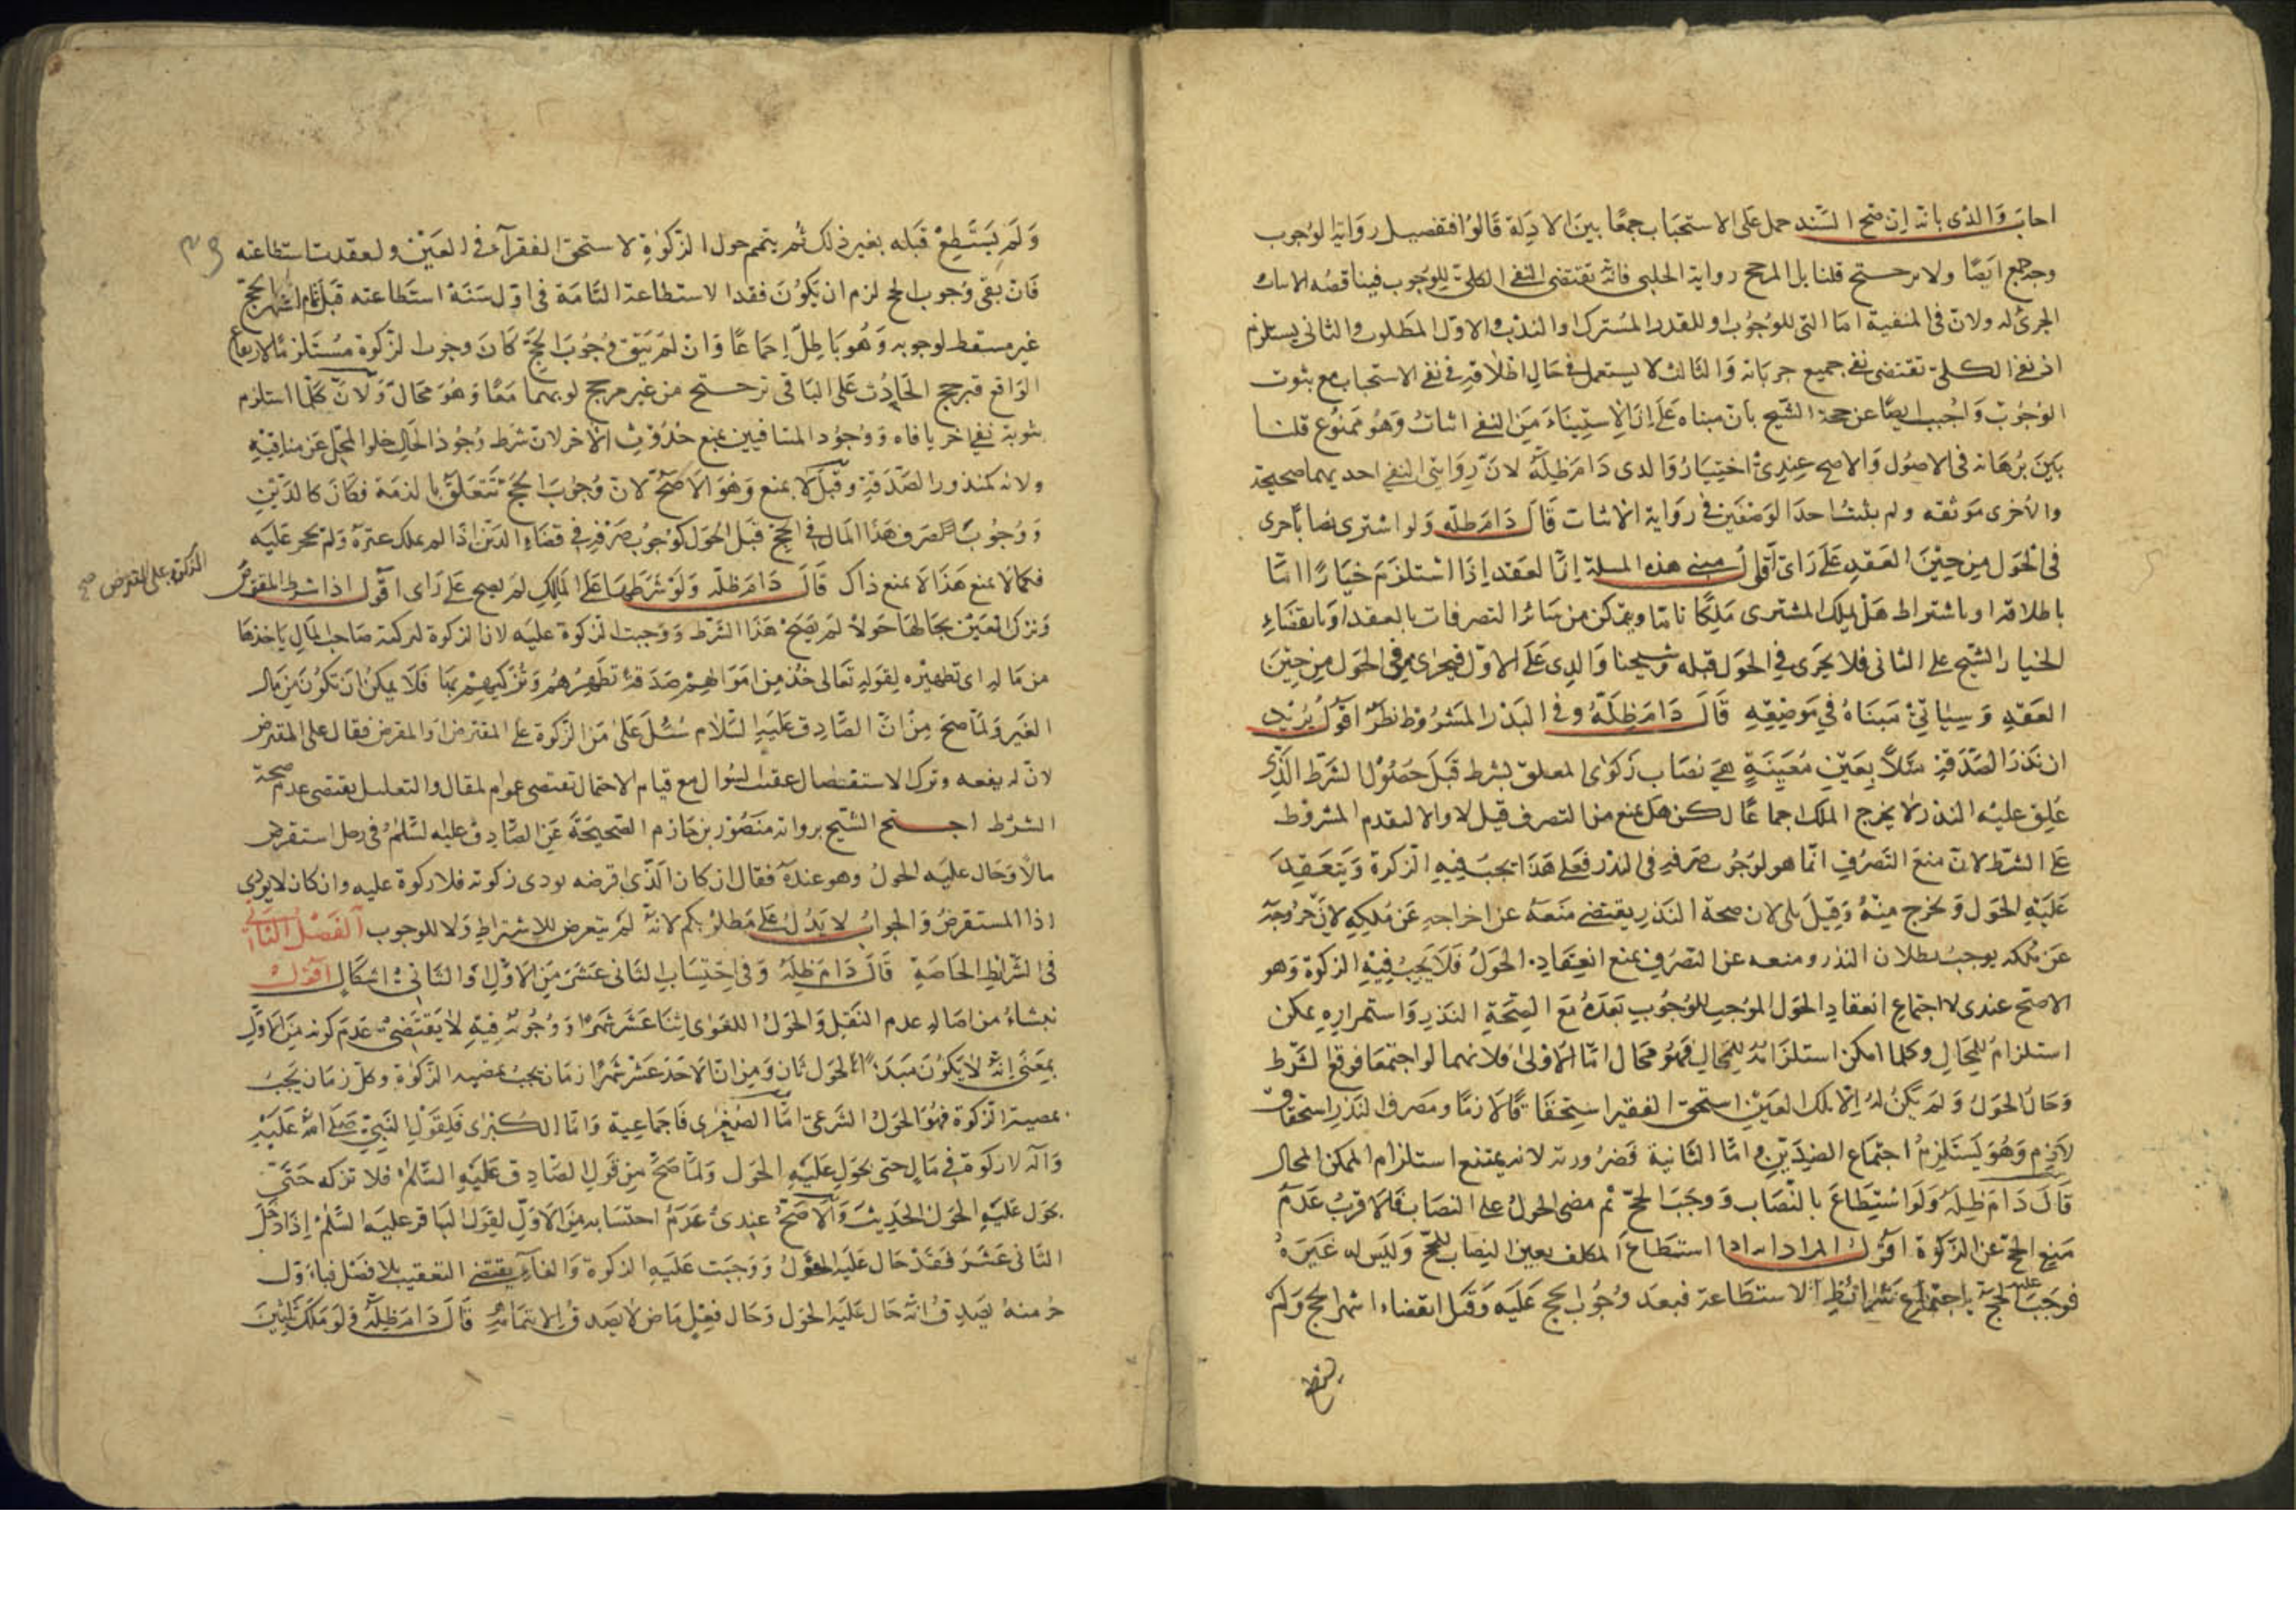 اجاب والدى بانه ان صح السند حمل على الاستحباب جمعا بين الادلة قالوا فتفصيل رواية الوجوب
وجه جمع ايضا ولا ترجيح قلنا بل المرجح رواية الحلبى فانه تقتضى النفى الكلى للوجوب فيناقضه الاثبات
الجزئى له ولان فى المنفية اما التى للوجوب او للقدر المشترك او الندب والاول المطلوب والثانى يستلزم
اذ نفى الكلى تقتضى نفى جميع جزياته والثالث لا يستعمل فى حال اطلاقه فى نفى الاستحباب مع ثبوت
الوجوب واجيب ايضا عن حجة الشيخ بان مبناه على ان الاستثناء من النفى اثبات وهو ممنوع قلنا
بين برهانه فى الاصول والاصح عندى اختيار والدى دام ظله لان روايتى النفى احديهما صحيحة
والاخرى موثقه ولم يثبت احد الوصفين فى رواية الاثبات قال دام ظله ولو اشترى نصابا جرى
فى الحول من حين العقد على راى اقول مبنى هذه المسلة ان العقد اذا استلزم خيارا اما
باطلاقه او باشتراط هل يملك المشترى ملكا تاما ويتمكن من سائر التصرفات بالعقد او بانقضاء
الخيار الشيخ على الثانى فلا يجرى فى الحول قبله وشيخنا والدى على الاول فيجرى فى الحول من حين
العقد وسياتى مبناه فى موضعه قال دام ظله وفى النذر المشروط نظر اقول يريد
ان نذر الصدقة مثلا بعين معينة هى نصاب زكوى المعلق بشرط قبل حصول الشرط الذى
علق عليه النذر لا يخرج الملك اجماعا لكن هل يمنع من التصرف قيل لا والا لتقدم المشروط
على الشرط لان منع التصرف انما هو لوجوب صرفه فى النذر فعلى هذا يجب فيه الزكوة وينعقد
عليه الحول ويخرج منه وقيل بلى لان صحة النذر يقتضى منعه عن اخراجه عن ملكه لان خروجه
عن ملكه يوجب بطلان النذر ومنعه عن التصرف يمنع انعقاد الحول فلا يجب فيه الزكوة وهو
الاصح عندى لاجتماع انعقاد الحول الموجب للوجوب بعده مع الصحة النذر واستمراره يمكن
استلزامه للمحال وكلما امكن استلزامه للمحال فهو محال اما الاولى فلانهما لو اجتمعا فوقع الشرط
وحال الحول ولم يكن له الا تلك العين استحق الفقير استحقاقا لازما ومصرف النذر استحقاق
لازم وهو يستلزم اجتماع الضدين واما الثانية فضرورته لانه يمتنع استلزام الممكن المحال
قال دام ظله ولو استطاع بالنصاب ووجب الحج ثم مضى الحول على النصاب فالاقرب عدم
منع الحج عن الزكوة اقول المراد انه اذا استطاع المكلف بعين النصاب للحج وليس له غيره
فوجب عليه الحج باجتماع شرائط الاستطاعة فبعد وجوب الحج عليه وقبل انقضاء اشهر الحج ولم
ولم يستطع قبله بغير ذلك ثم يتمم حول الزكوة لاستحق الفقرآء فى العين ولفقدت استطاعته
فان بقى وجوب الحج لزم ان يكون فقد الاستطاعة التامة فى اول سنة استطاعته قبل تمام اشهر الحج
غير مسقط لوجوبه وهو باطل اجماعا وان لم يبق وجوب الحج كان وجوب الزكوة مستلزما لارتفاع
الواقع فترجيح الحادث على الباقى ترجيح من غير مرجح لوجبا معا وهو محال ولان كلما استلزم
ثبوته نفى اخر نافاه ووجود المتنافيين يمنع حدوث الاخر لان شرط وجود الحال خلو المحل عن منافيه
ولانه كمنذور الصدقة وقيل لا يمنع وهو الاصح لان وجوب الحج تتعلق بالذمة فكان كالدين
ووجوب صرف هذا المال فى الحج قبل الحول كوجوب صرفه فى قضاء الدين اذا لم يملك غيره ولم يحجر عليه
فكما لا يمنع هذا لا يمنع ذاك قال دام ظله ولو شرطها على المالك لم يصح على راى اقول اذا شرط المقترض
الزكوة على المقرض صح
وترك العين بحالها حولا لم يصح هذا الشرط ووجبت الزكوة عليه لان الزكوة لتزكية صاحب المال ياخذها
من ماله اى تطهيره لقوله تعالى خذ من اموالهم صدقة تطهرهم وتزكيهم بها فلا يمكن ان تكون من مال
الغير ولما صح من ان الصادق عليه السلام سئل على من الزكوة على المقترض او المقرض فقال على المقترض
لان له نفعه وترك الاستفصال عقيب السوال مع قيام الاحتمال تقتضى عموم المقال والتعليل يقتضى عدم صحة
الشرط احتج الشيخ برواية منصور بن حازم الصحيحة عن الصادق عليه السلم فى رجل استقرض
مالا وحال عليه الحول وهو عنده فقال ان كان الذى اقرضه يودى زكوته فلا زكوة عليه وان كان لا يودى
ادا المستقرض والجواب لا يدل على مطلوبكم لانه لم يتعرض للاشتراط ولا للوجوب الفصل الثانى
فى الشرايط الخاصة قال دام ظله وفى احتساب الثانى عشر من الاول او الثانى اشكال اقول
نيشاء من اصاله عدم النقل والحول اللغوى اثنا عشر شهرا ووجوبه فيه لا يقتضى عدم كونه من الاول
بمعنى انه لا يكون مبدء الحول ثان ومن ان الاحد عشر شهرا زمان يجب بمضيه الزكوة وكل زمان يجب
بمضيه الزكوة فهو الحول الشرعى اما الصغرى فاجماعية واما الكبرى فلقول النبى صلى الله عليه
وآله لا زكوة فى مال حتى يحول عليه الحول ولما صح من قول الصادق عليه السلم فلا تزكه حتى
يحول عليه الحول الحديث والاصح عندى عدم احتسابه من الاول لقول الباقر عليه السلم اذا دخل
الثانى عشر فقد حال عليه الحول ووجبت عليه الزكوة والفاء يقتضى التعقيب بلا فصل فباول
جزء منه يصدق انه حال عليه الحول وحال فعل ماض لا يصدق الا بتمامه قال دام ظله فلو ملك ثلثين